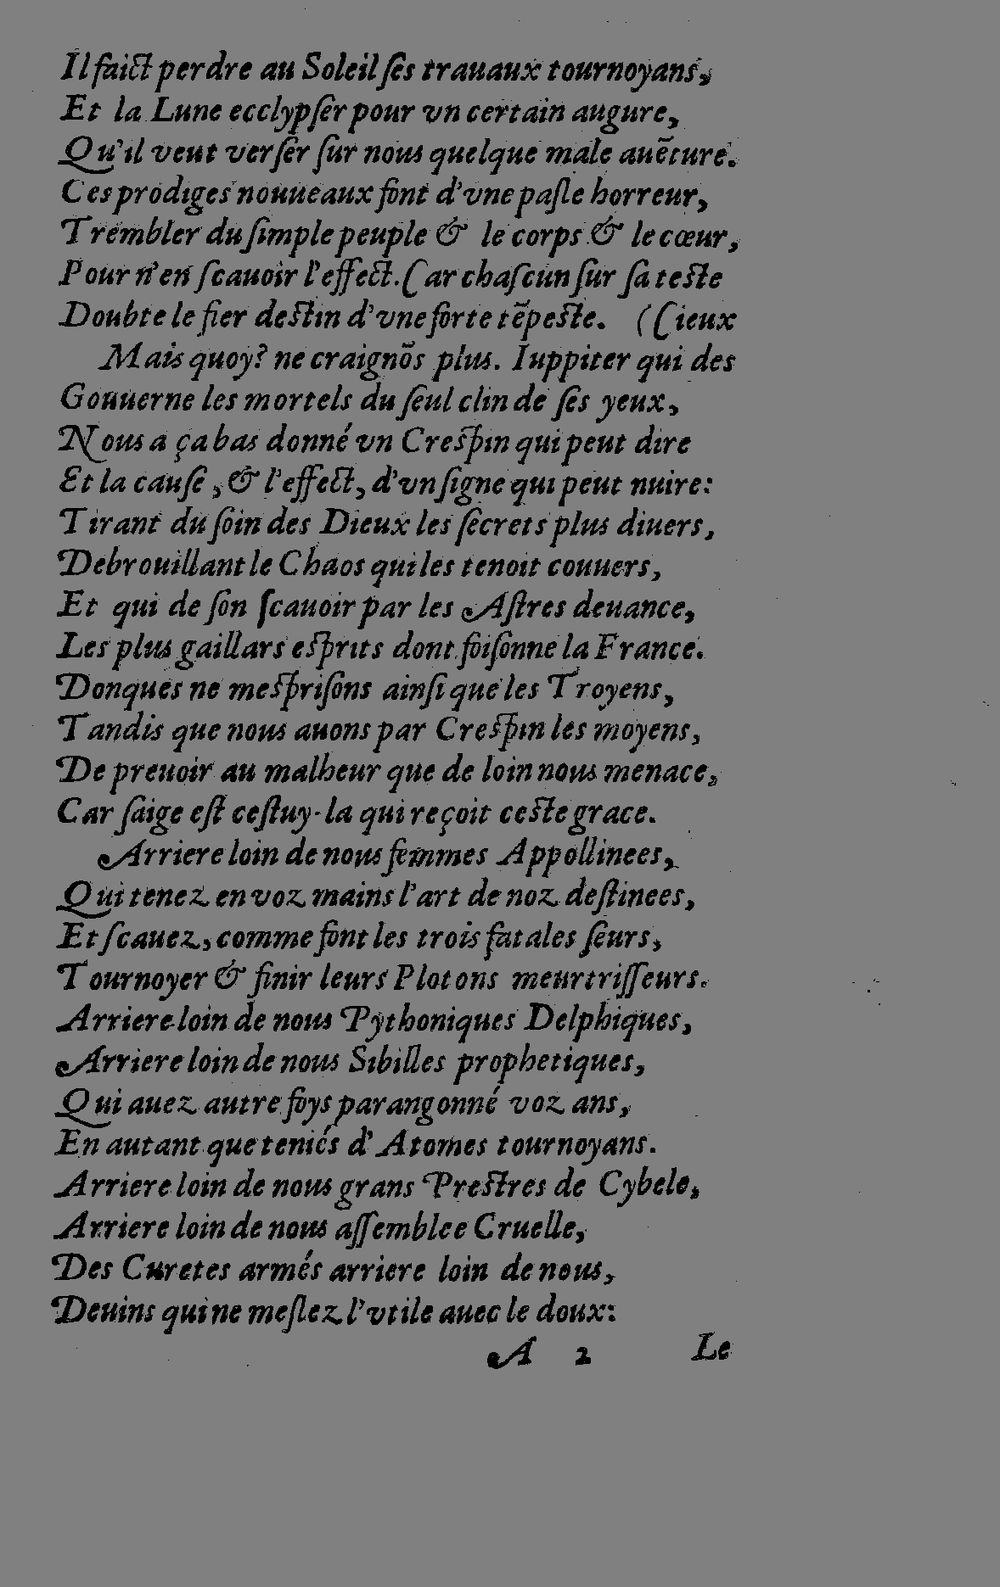 Il faict perdre au Soleil ſes trauaux tournoyans,
Et la Lune ecclypſer pour vn certain augure,
Qu'il veut verſer ſur nous quelque male auẽture.
Ces prodiges nouueaux font d'vne paſle horreur,
Trembler du ſimple peuple & le corps & le cœur,
Pour n'en ſcauoir l'effect. Car chaſcun ſur ſa teſte
Doubte le fier deſtin d'vne forte tẽpeſte. (Cieux
Mais quoy? ne craignõs plus. Iuppiter qui des
Gouuerne les mortels du ſeul clin de ſes yeux,
Nous a ça bas donné vn Creſpin qui peut dire
Et la cauſe, & l'effect, d'vn ſigne qui peut nuire:
Tirant du ſoin des Dieux les ſecrets plus diuers,
Debrouillant le Chaos qui les tenoit couuers,
Et qui de ſon ſcauoir par les Aſtres deuance,
Les plus gaillars eſprits dont foiſonne la France.
Donques ne meſpriſons ainſi que les Troyens,
Tandis que nous auons par Creſpin les moyens,
De preuoir au malheur que de loin nous menace,
Car ſaige eſt ceſtuy-la qui reçoit ceſte grace.
Arriere loin de nous femmes Appollinees,
Qui tenez en voz mains l'art de noz deſtinees,
Et ſcauez, comme font les trois fatales ſeurs,
Tournoyer & finir leurs Plotons meurtriſſeurs.
Arriere loin de nous Pythoniques Delphiques,
Arriere loin de nous Sibilles prophetiques,
Qui auez autre foys parangonné voz ans,
En autant que teniés d'Atomes tournoyans.
Arriere loin de nous grans Preſtres de Cybele,
Arriere loin de nous aſſemblee Cruelle,
Des Curetes armés arriere loin de nous,
Deuins qui ne meſlez l'vtile auec le doux:
A 2 Le